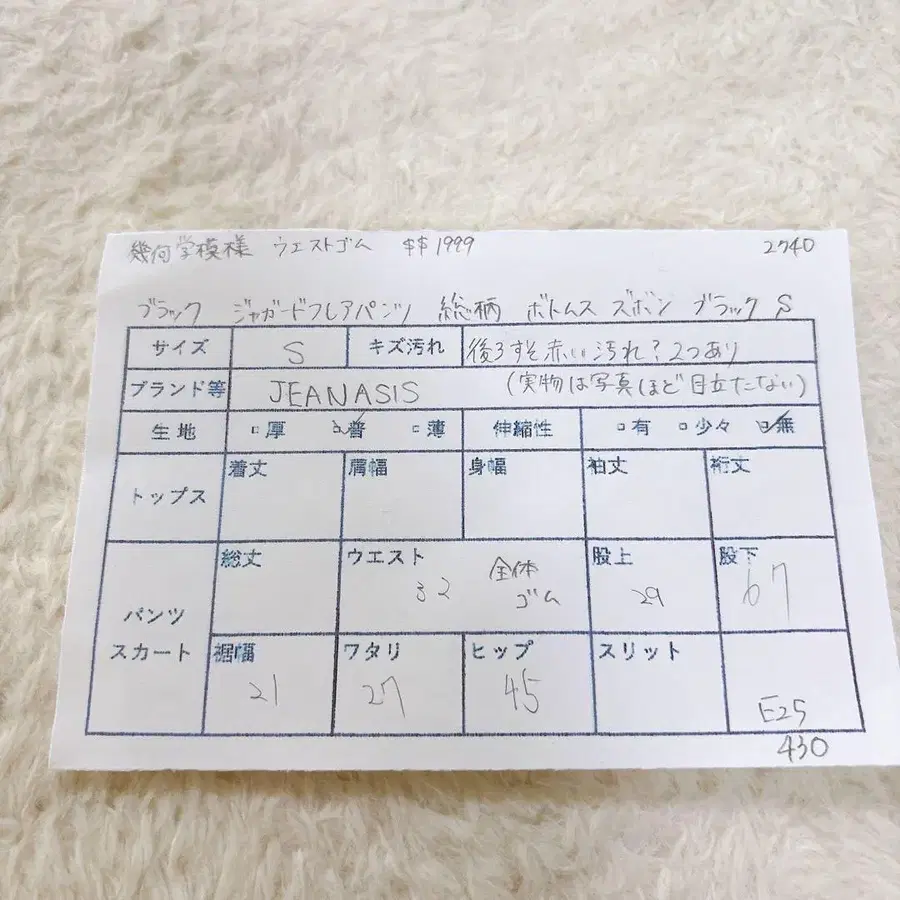 幾何学模様 ウエストゴム $$1999 2740
ブラック ジャガードフレアパンツ 総柄 ボトムス ズボン ブラック S
サイズ S キズ汚れ 後ろすそ赤い汚れ?2つあり
ブランド等 JEANASIS (実物は写真ほど目立たない)
生地 □厚 ☑普 □薄 伸縮性 □有 □少々 ☑無
トップス 着丈 肩幅 身幅 袖丈 裄丈
パンツ
スカート
総丈 ウエスト 32 全体
ゴム 股上 29 股下 67
裾幅 21 ワタリ 27 ヒップ 45 スリット E25
430